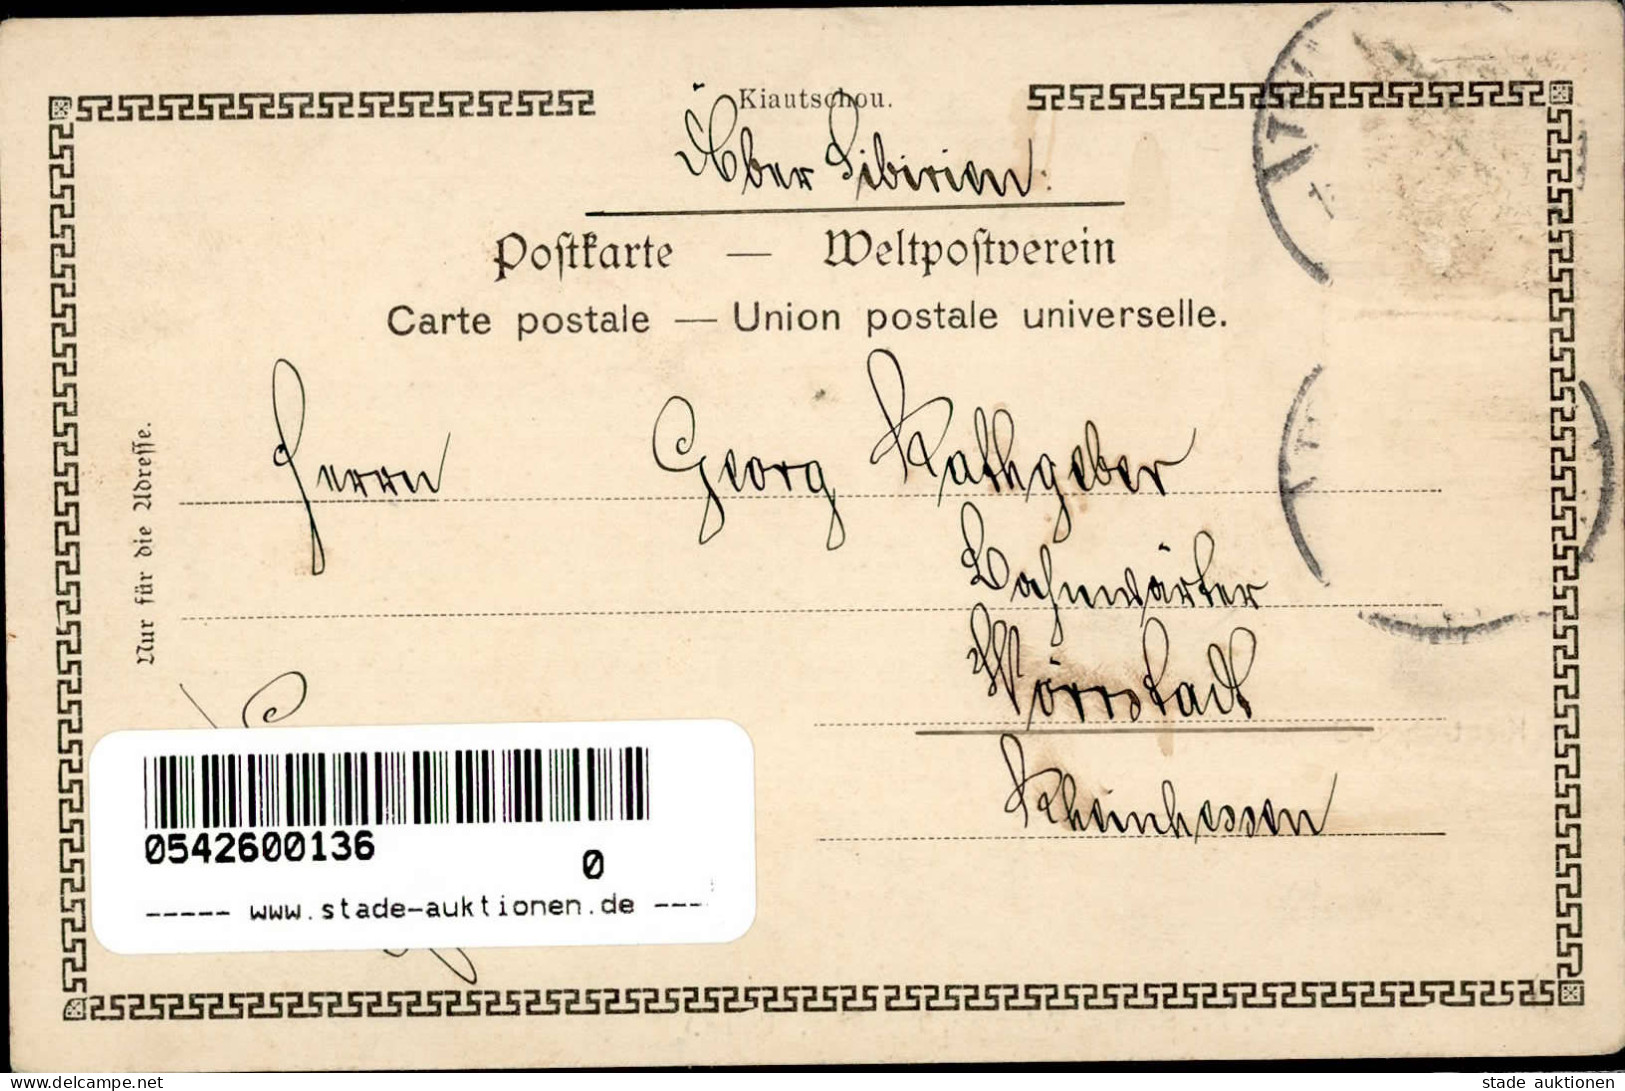 Kiautschou.
Über Sibirien.
Postkarte — Weltpostverein
Carte postale — Union postale universelle.
Herrn Georg Rathgeber
Bahnwärter
Wörrstadt
Rheinhessen
Nur für die Adresse.
0542600136
0
----- www.stade-auktionen.de ----
www.delcampe.net
stade auktionen